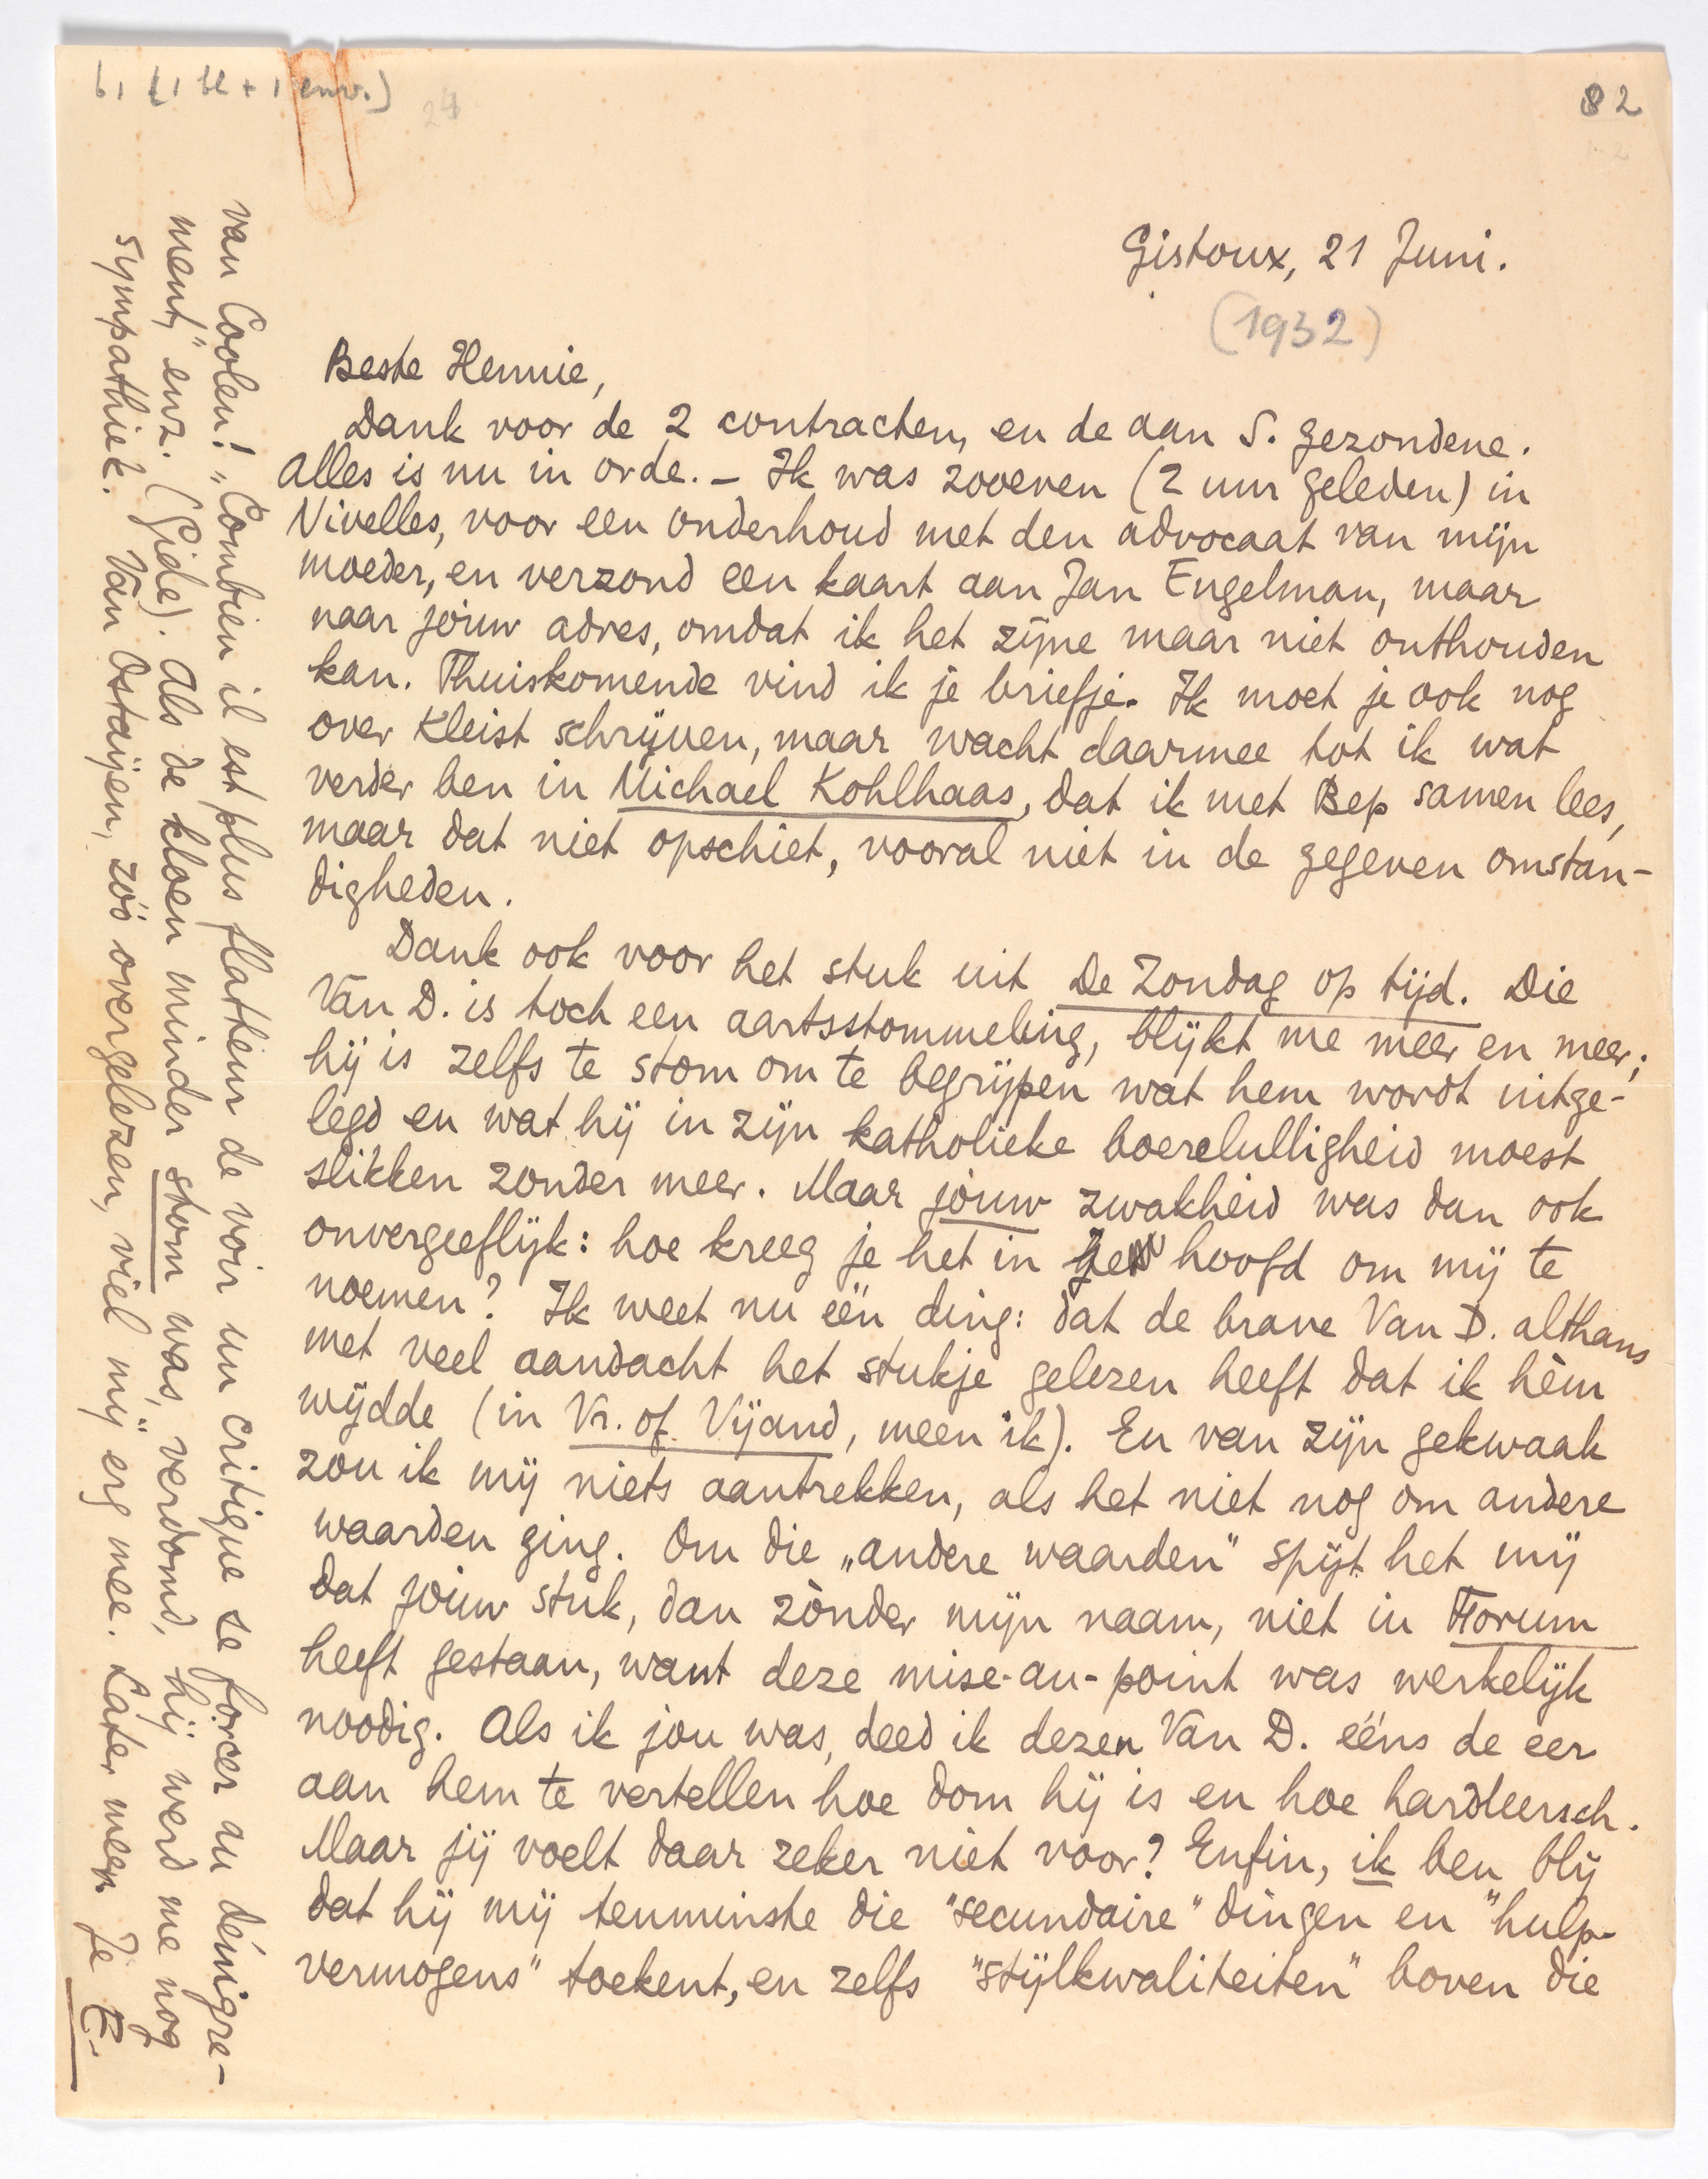 61 (1 bl + 1 env.)
24
82
Gistoux, 21 Juni.
(1932)
Beste Hennie,
Dank voor de 2 contracten, en de aan S. gezondene.
Alles is nu in orde. – Ik was zooeven (2 uur geleden) in
Nivelles, voor een onderhoud met den advocaat van mijn
moeder, en verzond een kaart aan Jan Engelman, maar
naar jóuw adres, omdat ik het zijne maar niet onthouden
kan. Thuiskomende vind ik je briefje. Ik moet je ook nog
over Kleist schrijven, maar wacht daarmee tot ik wat
verder ben in Michael Kohlhaas, dat ik met Bep samen lees,
maar dat niet opschiet, vooral niet in de gegeven omstan-
digheden.
Dank ook voor het stuk uit De Zondag op tijd. Die
Van D. is toch een aartsstommeling, blijkt me meer en meer;
hij is zelfs te stom om te begrijpen wat hem wordt uitge-
legd en wat hij in zijn katholieke boerelulligheid moest
slikken zonder meer. Maar jóuw zwakheid was dan ook
onvergeeflijk: hoe kreeg je het in hoofd om mij te
noemen? Ik weet nu één ding: dat de brave Van D. althans
met veel aandacht het stukje gelezen heeft dat ik hèm
wijdde (in Vr. of Vijand, meen ik). En van zijn gekwaak
zou ik mij niets aantrekken, als het niet nog om andere
waarden ging. Om die „andere waarden" spijt het mij
dat jóuw stuk, dan zònder mijn naam, niet in Forum
heeft gestaan, want deze mise-au-point was werkelijk
noodig. Als ik jou was, deed ik dezen Van D. ééns de eer
aan hem te vertellen hoe dom hij is en hoe hardleersch.
Maar jij voelt daar zeker niet voor? Enfin, ik ben blij
dat hij mij tenminste die "secundaire" dingen en "hulp-
vermogens" toekent, en zelfs "stijlkwaliteiten" boven die
van Coolen! „Combien il est plus flatteur de voir un critique se forcer au dénigre-
ment," enz. (Gide). Als de kloen minder stom was, verdomd, hij werd me nog
sympathiek. Van Ostaijen, zóó overgelezen, viel mij erg mee. Later meer. Je E.